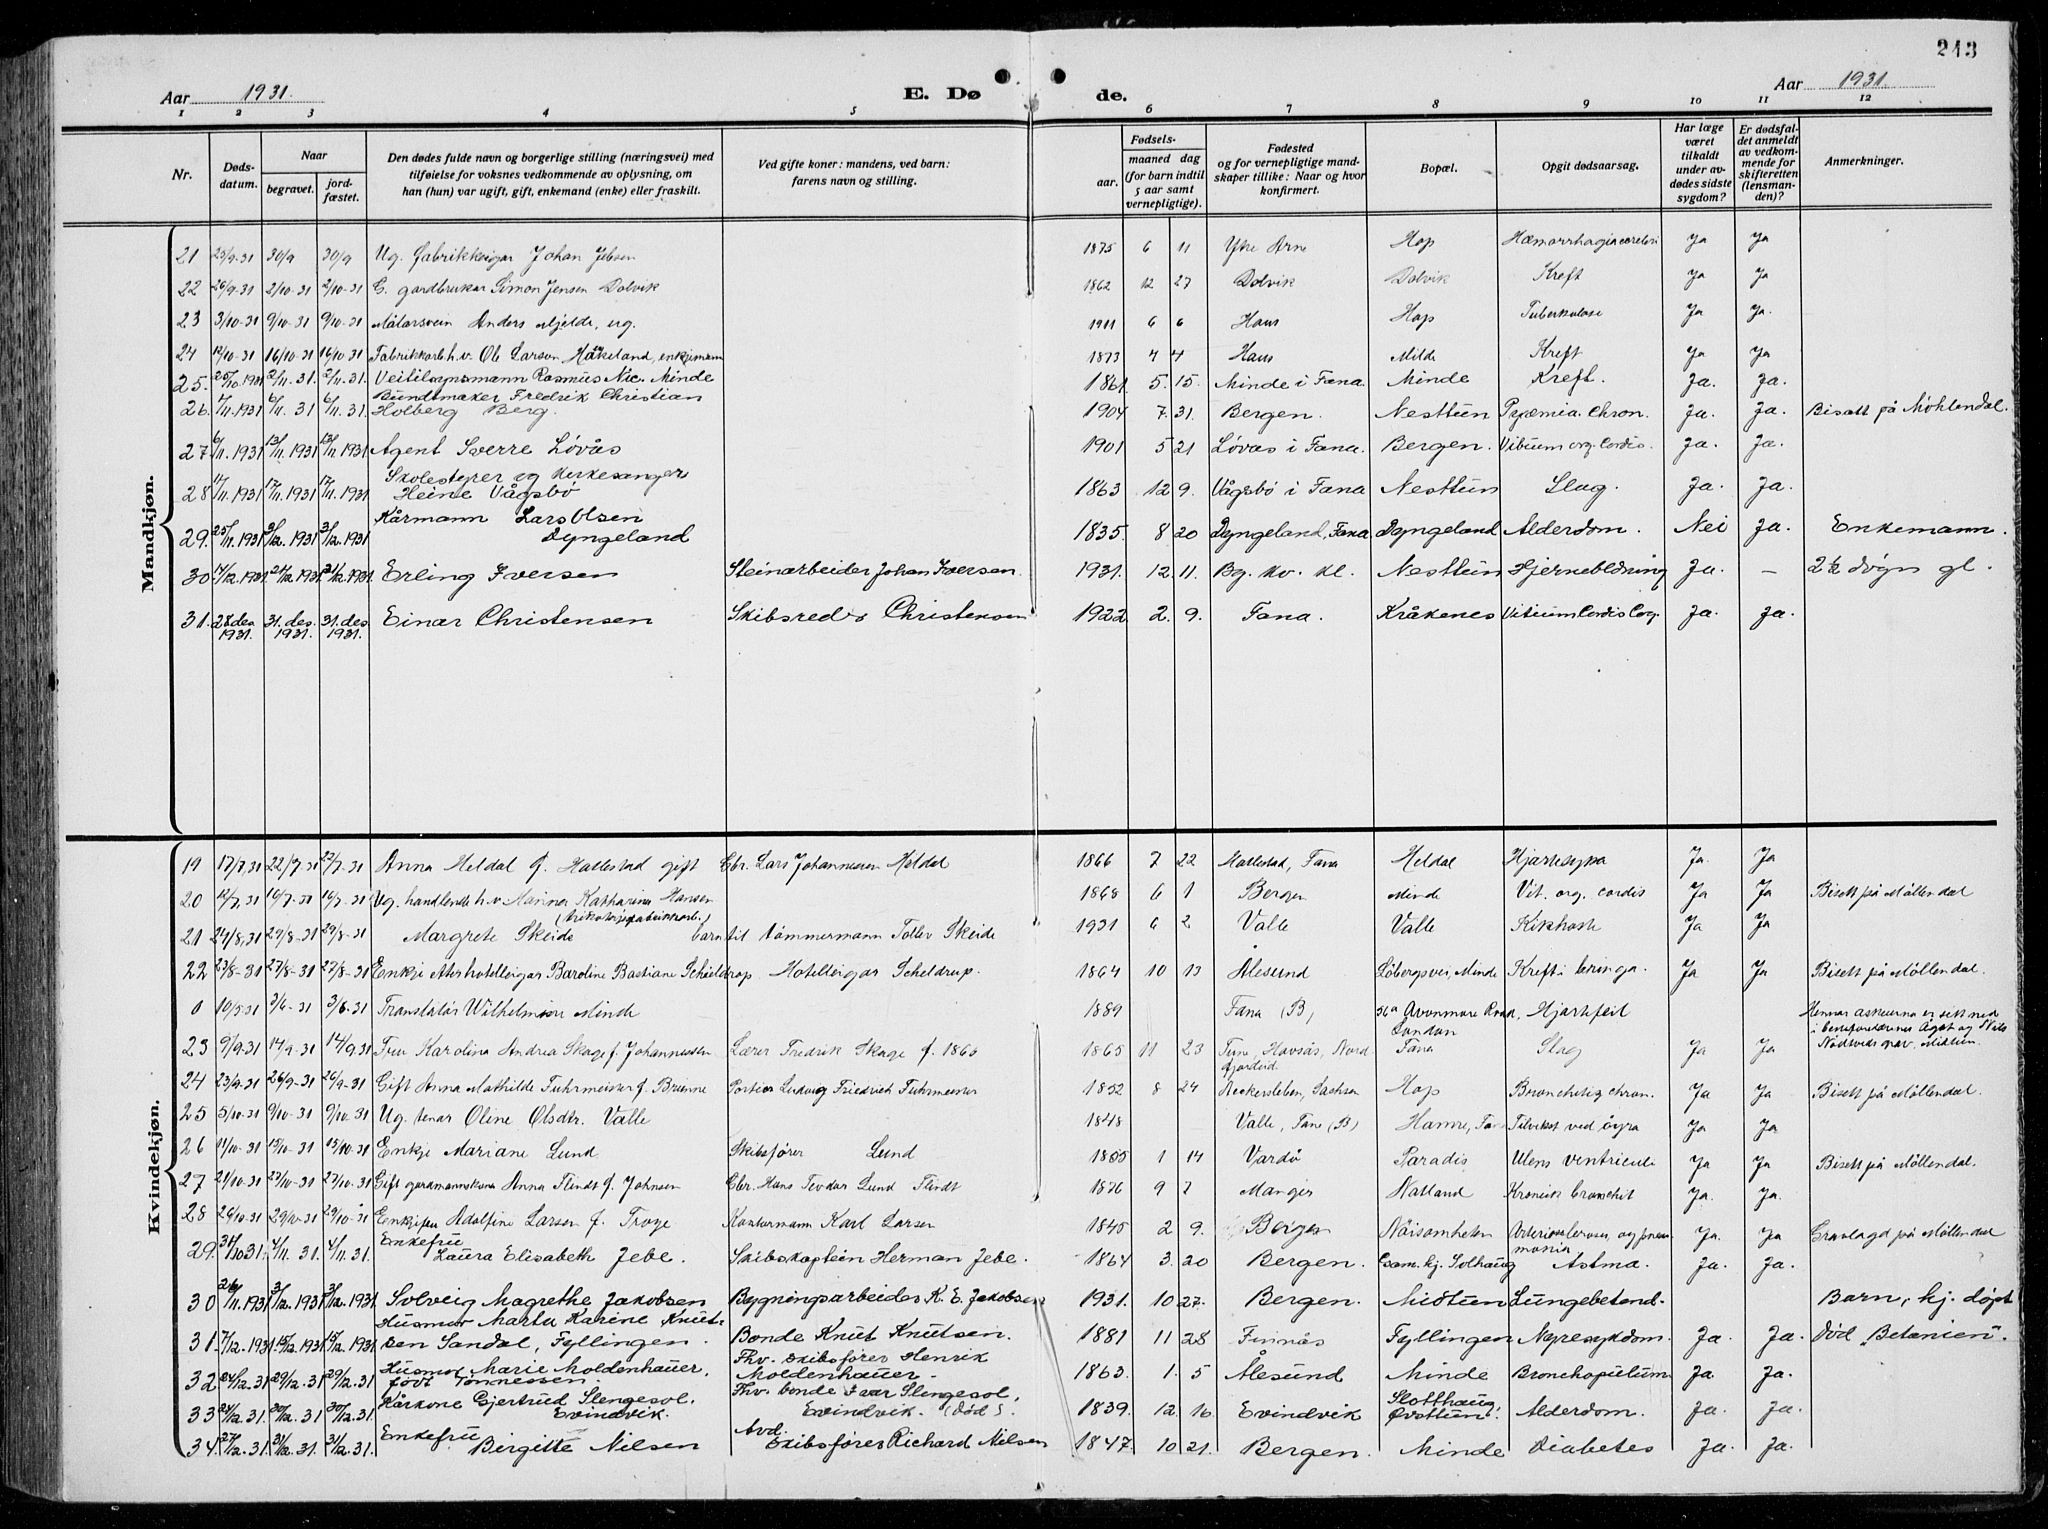 243
Aar 1931. E. Dø de. Aar 1931.
1 2 3 4 5 6 7 8 9 10 11 12
Nr.
Døds-
datum.
Naar
begravet.
jord-
fæstet.
Den dødes fulde navn og borgerlige stilling (næringsvei) med
tilføielse for voksnes vedkommende av oplysning, om
han (hun) var ugift, gift, enkemand (enke) eller fraskilt.
Ved gifte koner: mandens, ved barn:
farens navn og stilling.
Fødsels-
aar.
maaned dag
(for barn indtil
5 aar samt
vernepligtige).
Fødested
og for vernepligtige mand-
skaper tillike: Naar og hvor
konfirmert.
Bopæl.
Opgit dødsaarsag.
Har læge
været
tilkaldt
under av-
dødes sidste
sygdom?
Er dødsfal-
det anmeldt
av vedkom-
mende for
skifteretten
(lensman-
den)?
Anmerkninger.
Mandkjøn.
21 25/9-31 30/9 30/9 Ug. fabrikkeigar Johan Jebsen 1875 6 11 Ytre Arne Hop Hæmorrhagia cerebri Ja Ja
22 26/9-31 2/10-31 2/10-31 G. gardbrukar Simon Jensen Dolvik 1862 12 27 Dolvik Dolvik Kreft Ja Ja
23 3/10-31 9/10-31 9/10-31 Målarsvein Anders Mjelde, ug. 1911 6 6 Haus Hop Tuberkulose Ja Ja.
24 12/10-31 16/10-31 16/10-31 Fabrikkarb.h.v. Ole Larsen Håkeland, enkjemann 1873 4 4 Haus Milde Kreft Ja Ja
25. 25/10.1931 2/11.31. 2/11.31. Veitilsynsmann Rasmus Nic. Minde 1861 5. 15. Minde i Fana. Minde Kreft. Ja. Ja.
Buntmaker Fredrik Christian
26. 1/11.1931 6/11 31 6/11.31. Holberg Berg. 1904 7. 31. Bergen. Nesttun Pyæmia Chron. Ja. Ja. Bisatt på Møhlendal.
27. 6/11.1931 13/11.1931 13/11.1931 Agent Sverre Løvås 1901 5 21 Løvas i Fana. Bergen. Vitium org. Cordis. Ja. Ja.
Skolestyrer og kirkesanger
28 11/11.1931 17/11.1931 17/11.1931 Heine Vågsbø 1863 12 9. Vågsbø i Fana Nesttun Slag. Ja. Ja.
Kårmann Lars Olsen
29. 25/11.1931 3/12.1931 3/12.1931 Dyngeland 1835. 8 20 Dyngeland, Fana Dyngeland Alderdom. Nei Ja. Enkemann.
30 14/12.1931. 21/12.1931. 21/12.1931. Erling Iversen Steinarbeider Johan Iversen. 1931. 12. 11. Bg. kv. kl. Nesttun Hjerneblødning Ja. — 2½ døgn gl.
31. 28.des 1931. 31.des. 1931. 31.des. 1931. Einar Christensen Skibsreder Christensen 1922 2. 9. Fana. Kråkenes Vitium Cordis Cong. Ja. Ja.
Kvindekjøn.
19 17/7.31 22/7-31 22/7-31 Anna Meldal f. Hallestad gift Gbr. Lars Johannessen Meldal 1866 7 22 Hallestad, Fana Meldal Hjartesyka Ja. Ja
20 12/7.31 16/7-31 16/7-31 Ug. handlende h.v. Marina Katharina Hansen 1868 6 1 Bergen Minde Vit. org. cordis Ja Ja Bisett på Møllendal
21 24/8.31 29/8-31 29/8-31 Margrete Skeide barn til tømmermann Tollev Skeide 1931 6 2 Valle Valle Kikhoste Ja Ja
22 23/8-31 27/8-31 27/8-31 Enkje etter hotelleigar Baroline Bastiane Scheldrup. Hotelleigar Scheldrup. 1864 10 13 Ålesund Løbergsvei, Minde Kreft i bringa. Ja Ja Bisett på Møllendal.
0 10/5-31 3/6-31 3/6.31 Translatør Wilhelmine Minde 1889 Fana (B) 56a Avonmore Road, London Hjartefeil Hennar askeurna er sett ned
i besteforeldrenes Ågot og Nils
23 9/9.31 14/9-31 14/9 31 Fru Karolina Andrea Skage f. Johannessen Lærer Fredrik Skage f. 1866 1865 11 23 Fana Slag Ja Ja
24 23/9-31 26/9-31 26/9-31 Gift Anna Mathilde Fuhrmeister f. Brünne Portier Ludvig Friedrich Fuhrmeister 1852 8 24 Neckersleben, Sachsen Hop Bronchitis chron. Ja Ja Bisett på Møllendal.
25 5/10-31 9/10-31 9/10.31 Ug. tenar Oline Olsdtr. Valle 1848 Valle, Fana (B) Hamre, Fana Ja Ja
26 11/10-31 15/10-31 15/10-31 Enkje Mariane Lund Skibsfører Lund 1855 1 14 Vardö Paradis Ulcus ventriculi Ja Ja Bisett på Møllendal.
27 21/10-31 27/10-31 27/10-31 Gift gardmannskona Anna Flindt f. Johnsen Gbr. Hans Teodor Lund Flindt 1876 9 7 Manger Natland Kronisk bronchit Ja. Ja.
28 26/10-31 29/10-31 29/10-31 Enkjefru Adolfine Larsen f. Troye Kontormann Karl Larsen 1845 2 9. Bergen Nöisomheten Arteriosclerose, og pneumonia Ja. Ja. Gravlagd på Møllendal
Enkefru
29. 31/10 31. 4/11. 31. 4/11.31. Laura Elisabeth Jebe. Skibskaptein Herman Jebe. 1864 3. 20 Bergen. Gamlehj. Solhaug Astma. Ja. Ja.
30 26/11.1931 3/12.1931 3/12.1931. Solveig Magrethe Jakobsen Bygningsarbeider K. E. Jakobsen 1931. 10 27. Bergen. Midtun Lungebetend- Barn, hj. døpt
Husmor Marta Karine Knuts-
31. 7/12.1931 15/12.1931 15/12.1931 sen Sandal, Fyllingen. Bonde Knut Knutsen. 1881 11 28 Finnås Fyllingen Nyresykdom. Ja. Ja. Død „Betanien".
Husmor Marie Moldenhauer, Fhv. skibsfører Henrik
32 24/12.31 29/12.31 29/12.31 født Tønnessen. Moldenhauer. 1863. 1. 5 Ålesund Minde Ja Ja.
Kårkone Gjertrud Slengesol, Fhv. bonde Ivar Slengesol,
33 24/12.31. 30/12.31 30/12.31. Evindvik. Evindvik. (død). 1839. 12. 16 Evindvik Slotthaug, Øvsttun. Alderdom. Ja. Ja.
Enkefru Avd.
34. 27/12.31. 31/12.31. 31/12.31. Birgitte Nilsen Skibsfører Richard Nilsen 1847. 10 21. Bergen. Minde Diabetes Ja. Ja.